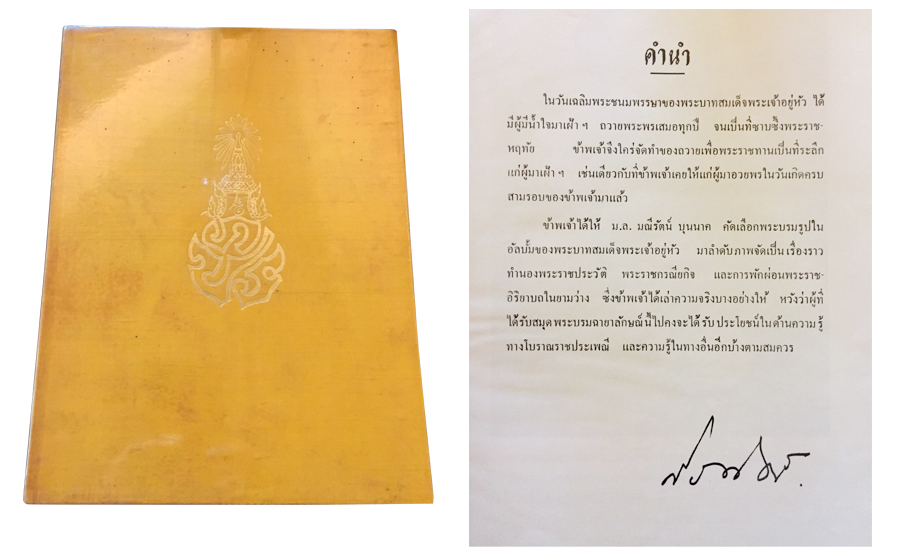 คำนำ
ในวันเฉลิมพระชนมพรรษาของพระบาทสมเด็จพระเจ้าอยู่หัว ได้
มีผู้มีน้ำใจมาเฝ้า ฯ ถวายพระพรเสมอทุกปี จนเป็นที่ซาบซึ้งพระราช-
หฤทัย ข้าพเจ้าจึงใคร่จัดทำของถวายเพื่อพระราชทานเป็นที่ระลึก
แก่ผู้มาเฝ้า ฯ เช่นเดียวกับที่ข้าพเจ้าเคยให้แก่ผู้มาอวยพรในวันเกิดครบ
สามรอบของข้าพเจ้ามาแล้ว
ข้าพเจ้าได้ให้ ม.ล. มณีรัตน์ บุนนาค คัดเลือกพระบรมรูปใน
อัลบั้มของพระบาทสมเด็จพระเจ้าอยู่หัว มาลำดับภาพจัดเป็นเรื่องราว
ทำนองพระราชประวัติ พระราชกรณียกิจ และการพักผ่อนพระราช-
อิริยาบถในยามว่าง ซึ่งข้าพเจ้าได้เล่าความจริงบางอย่างให้ หวังว่าผู้ที่
ได้รับสมุดพระบรมฉายาลักษณ์นี้ไปคงจะได้รับประโยชน์ในด้านความรู้
ทางโบราณราชประเพณี และความรู้ในทางอื่นอีกบ้างตามสมควร